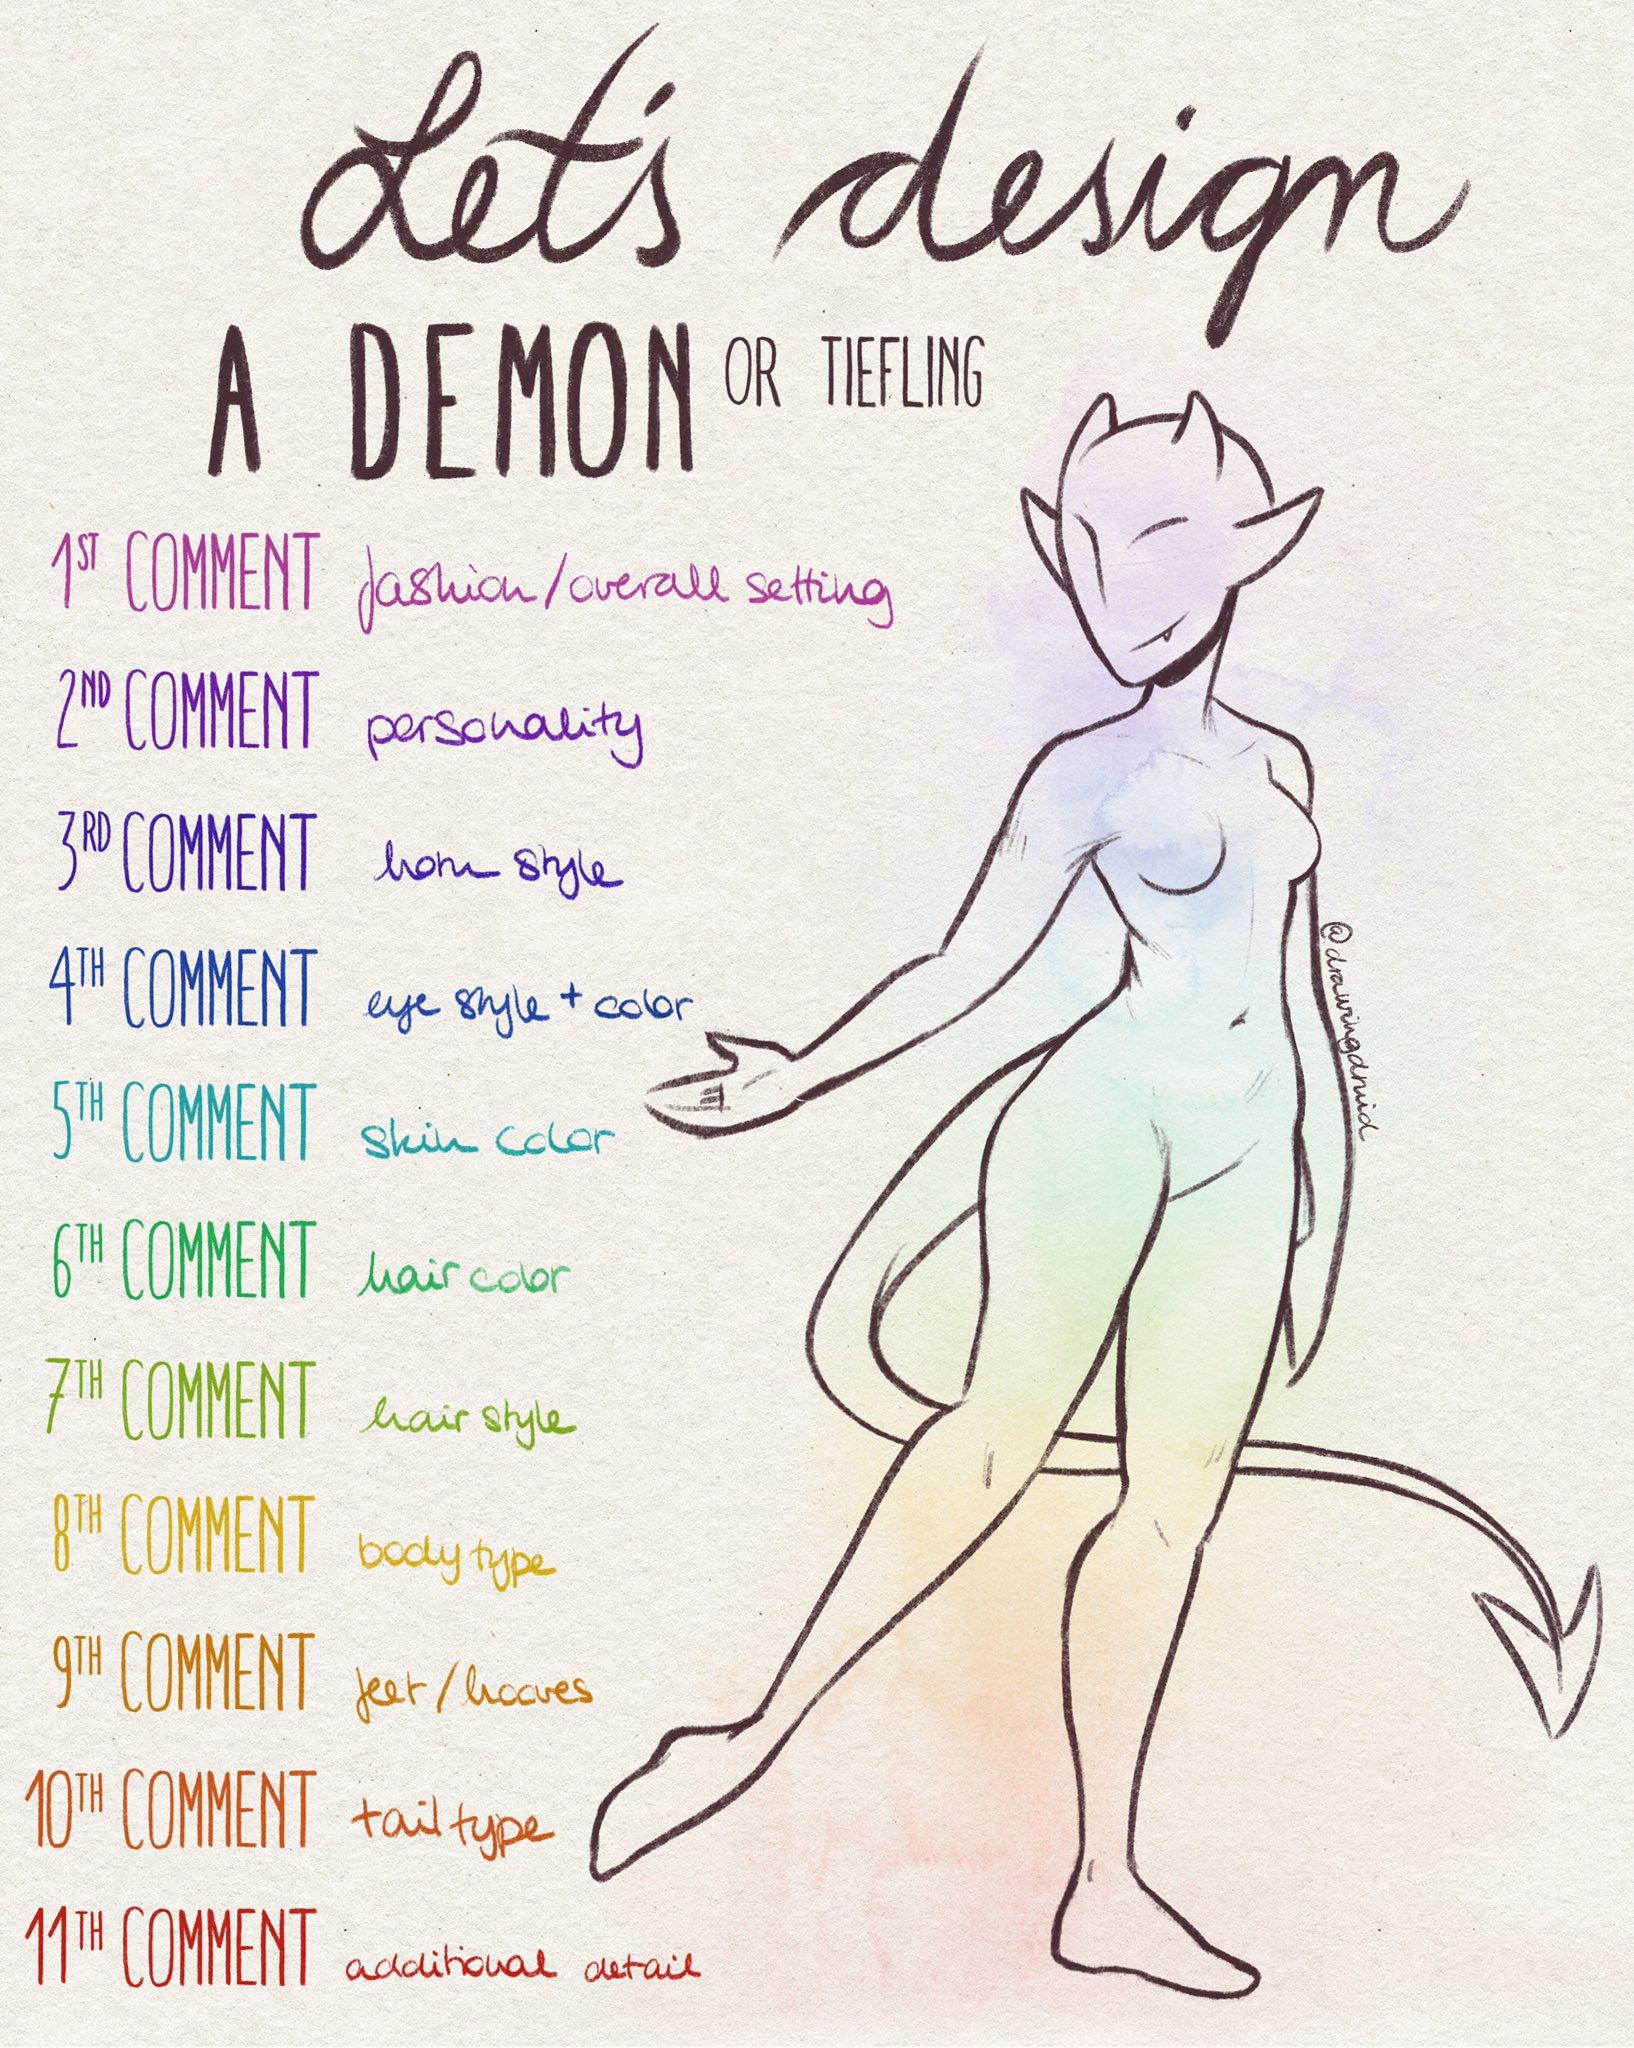 Let's design
A DEMON OR TIEFLING
1ST COMMENT fashion/overall setting
2ND COMMENT personality
3RD COMMENT horn style
4TH COMMENT eye style + color
5TH COMMENT skin color
6TH COMMENT hair color
7TH COMMENT hair style
8TH COMMENT body type
9TH COMMENT feet/hooves
10TH COMMENT tail type
11TH COMMENT additional detail
@drawingdruid